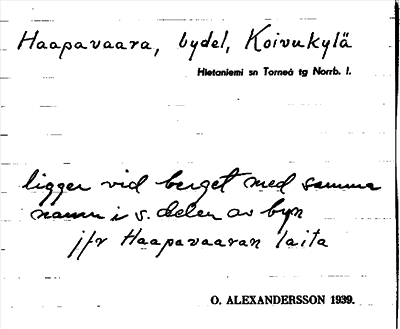 Haapavaara, bydel, Koivukylä
Hietaniemi sn Torneå tg Norrb. l.
ligger vid berget med samma
namn i s. delen av byn
jfr Haapavaaran laita
O. ALEXANDERSSON 1939.